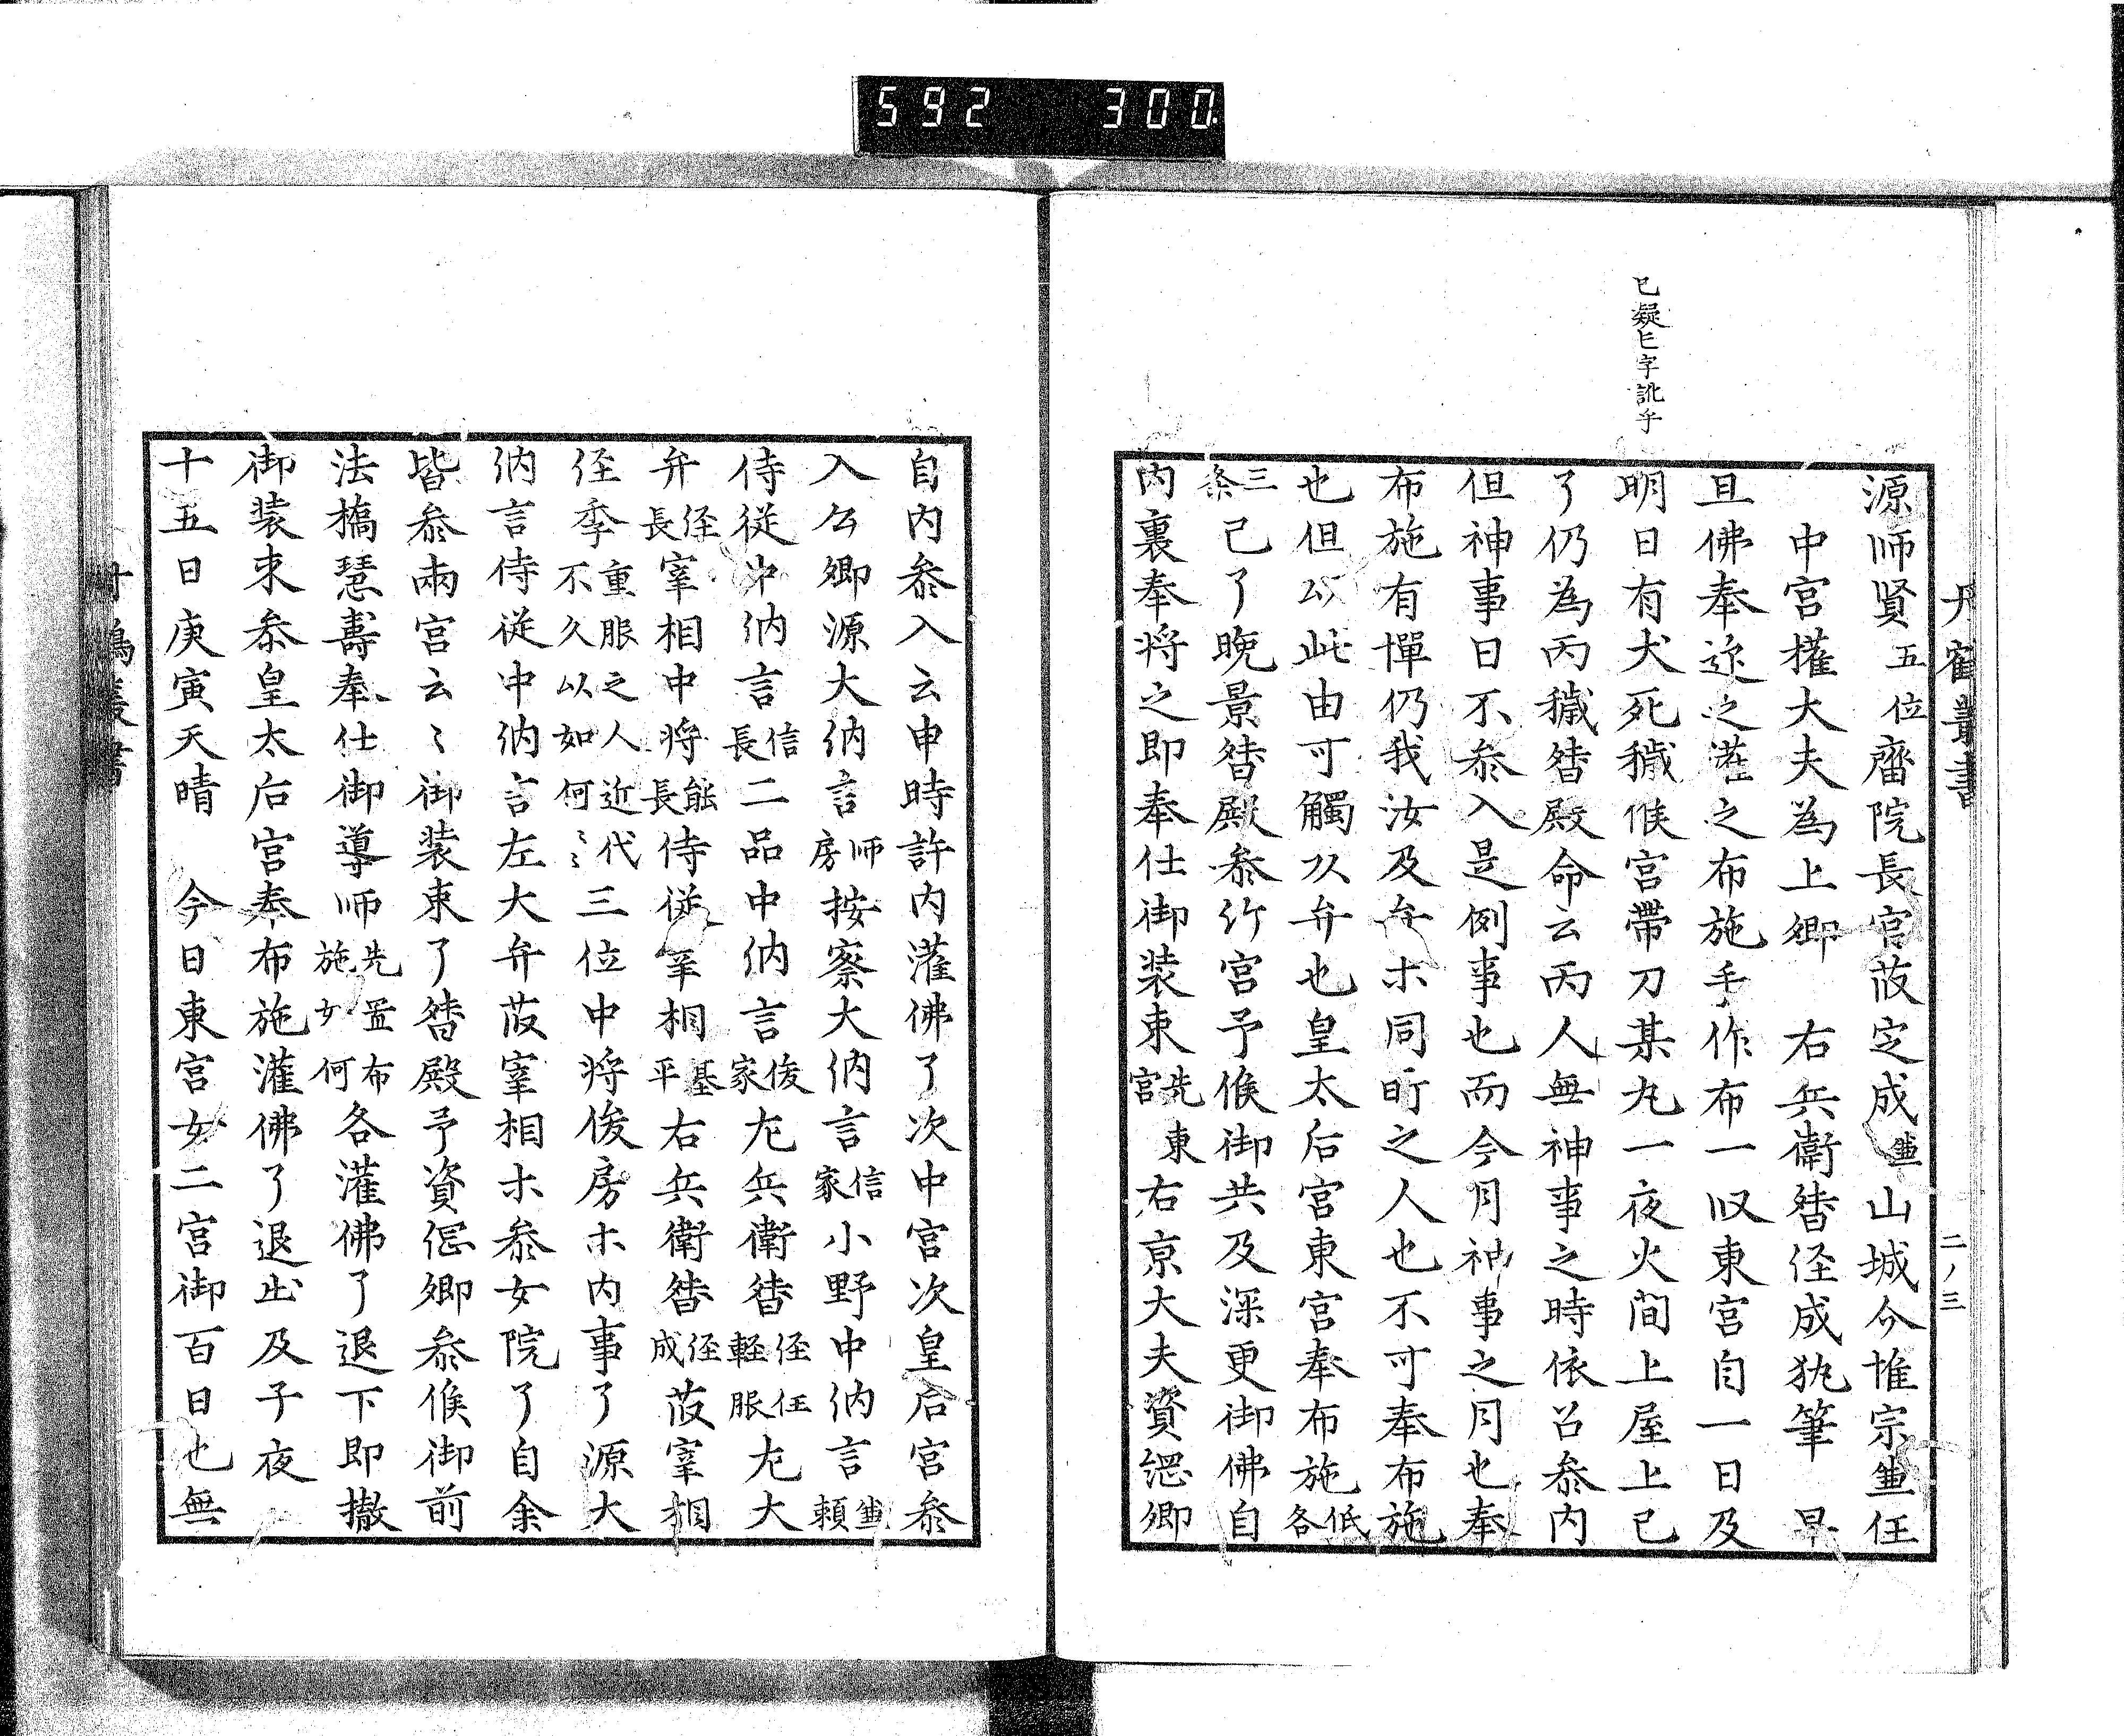 592 300
丹鶴叢書
二ノ三
已疑亡字訛乎
源師賢五位齋院長官菽定成兼山城介惟宗兼任
中宮権大夫為上卿 右兵衛督経成執筆 早
旦佛奉迎之灌之布施手作布一段東宮自一日及
明日有犬死穢候宮帯刀某丸一夜火間上屋上已
了仍為丙穢督殿命云丙人無神事之時依召参内
但神事日不参入是例事也而今月神事之月也奉
布施有憚仍我汝及弁ホ同所之人也不可奉布施
也但以此由可觸以弁也皇太后宮東宮奉布施各低
三条已了晩景督殿参行宮予候御共及深更御佛自
内裏奉将之即奉仕御装束先東宮右京大夫資綱卿
自内参入云申時許内灌佛了次中宮次皇后宮参
入公卿源大納言師房按察大納言信家小野中納言兼頼
侍従中納言信長二品中納言俊家左兵衛督経任軽服左大
弁経長宰相中将能長侍従宰相基平右兵衛督経成菽宰相
経季重服之人近代不久以如何〻〻三位中将俊房ホ内事了源大
納言侍従中納言左大弁菽宰相ホ参女院了自余
皆参両宮云〻御装束了督殿予資綱卿参候御前
法橋琶壽奉仕御導師先置布施女何各灌佛了退下即撤
御装束参皇太后宮奉布施灌佛了退出及子夜
十五日庚寅天晴 今日東宮女二宮御百日也無
丹鶴叢書